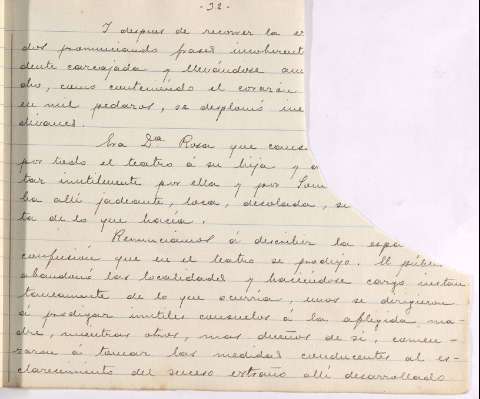 - 32 -
Y despues de recorrer la e
dos pronunciando frases incoherent
dente carcajada y llevándose am
cho, como conteniendo el corazón
en mil pedazos, se desplomó ine
divanes.
Era Dª Rosa que
por todo el teatro á su hija y
tar inutilmente por ella y por
ba allí jadeante, loca, desolada, s
ta de lo que hacía.
Renunciamos á describir la espa
confusión que en el teatro se produjo. El públi
abandonó las localidades y haciéndose cargo instan
taneamente de lo que ocurria, unos se dirigieron
á prodigar inutiles consuelos á la afligida ma-
dre, mientras otros, mas dueños de si, comen-
zaron á tomar las medidas conducentes al es-
clarecimiento del suceso extraño allí desarrollado